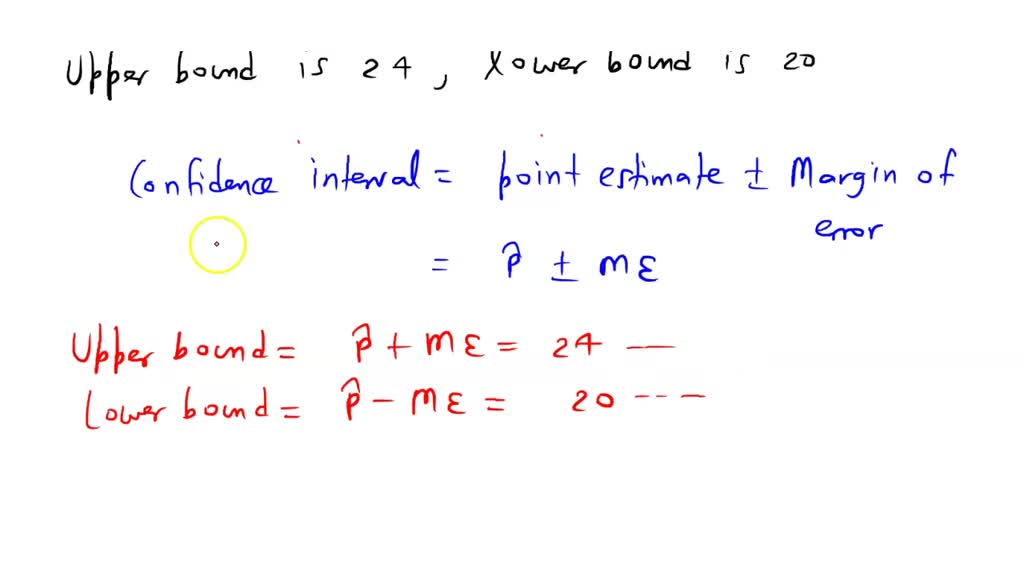 Upper bound is 24, Lower bound is 20
Confidence interval = point estimate ± Margin of
error
= p̂ ± ME
Upper bound = p̂ + ME = 24 —
Lower bound = p̂ - ME = 20 ---